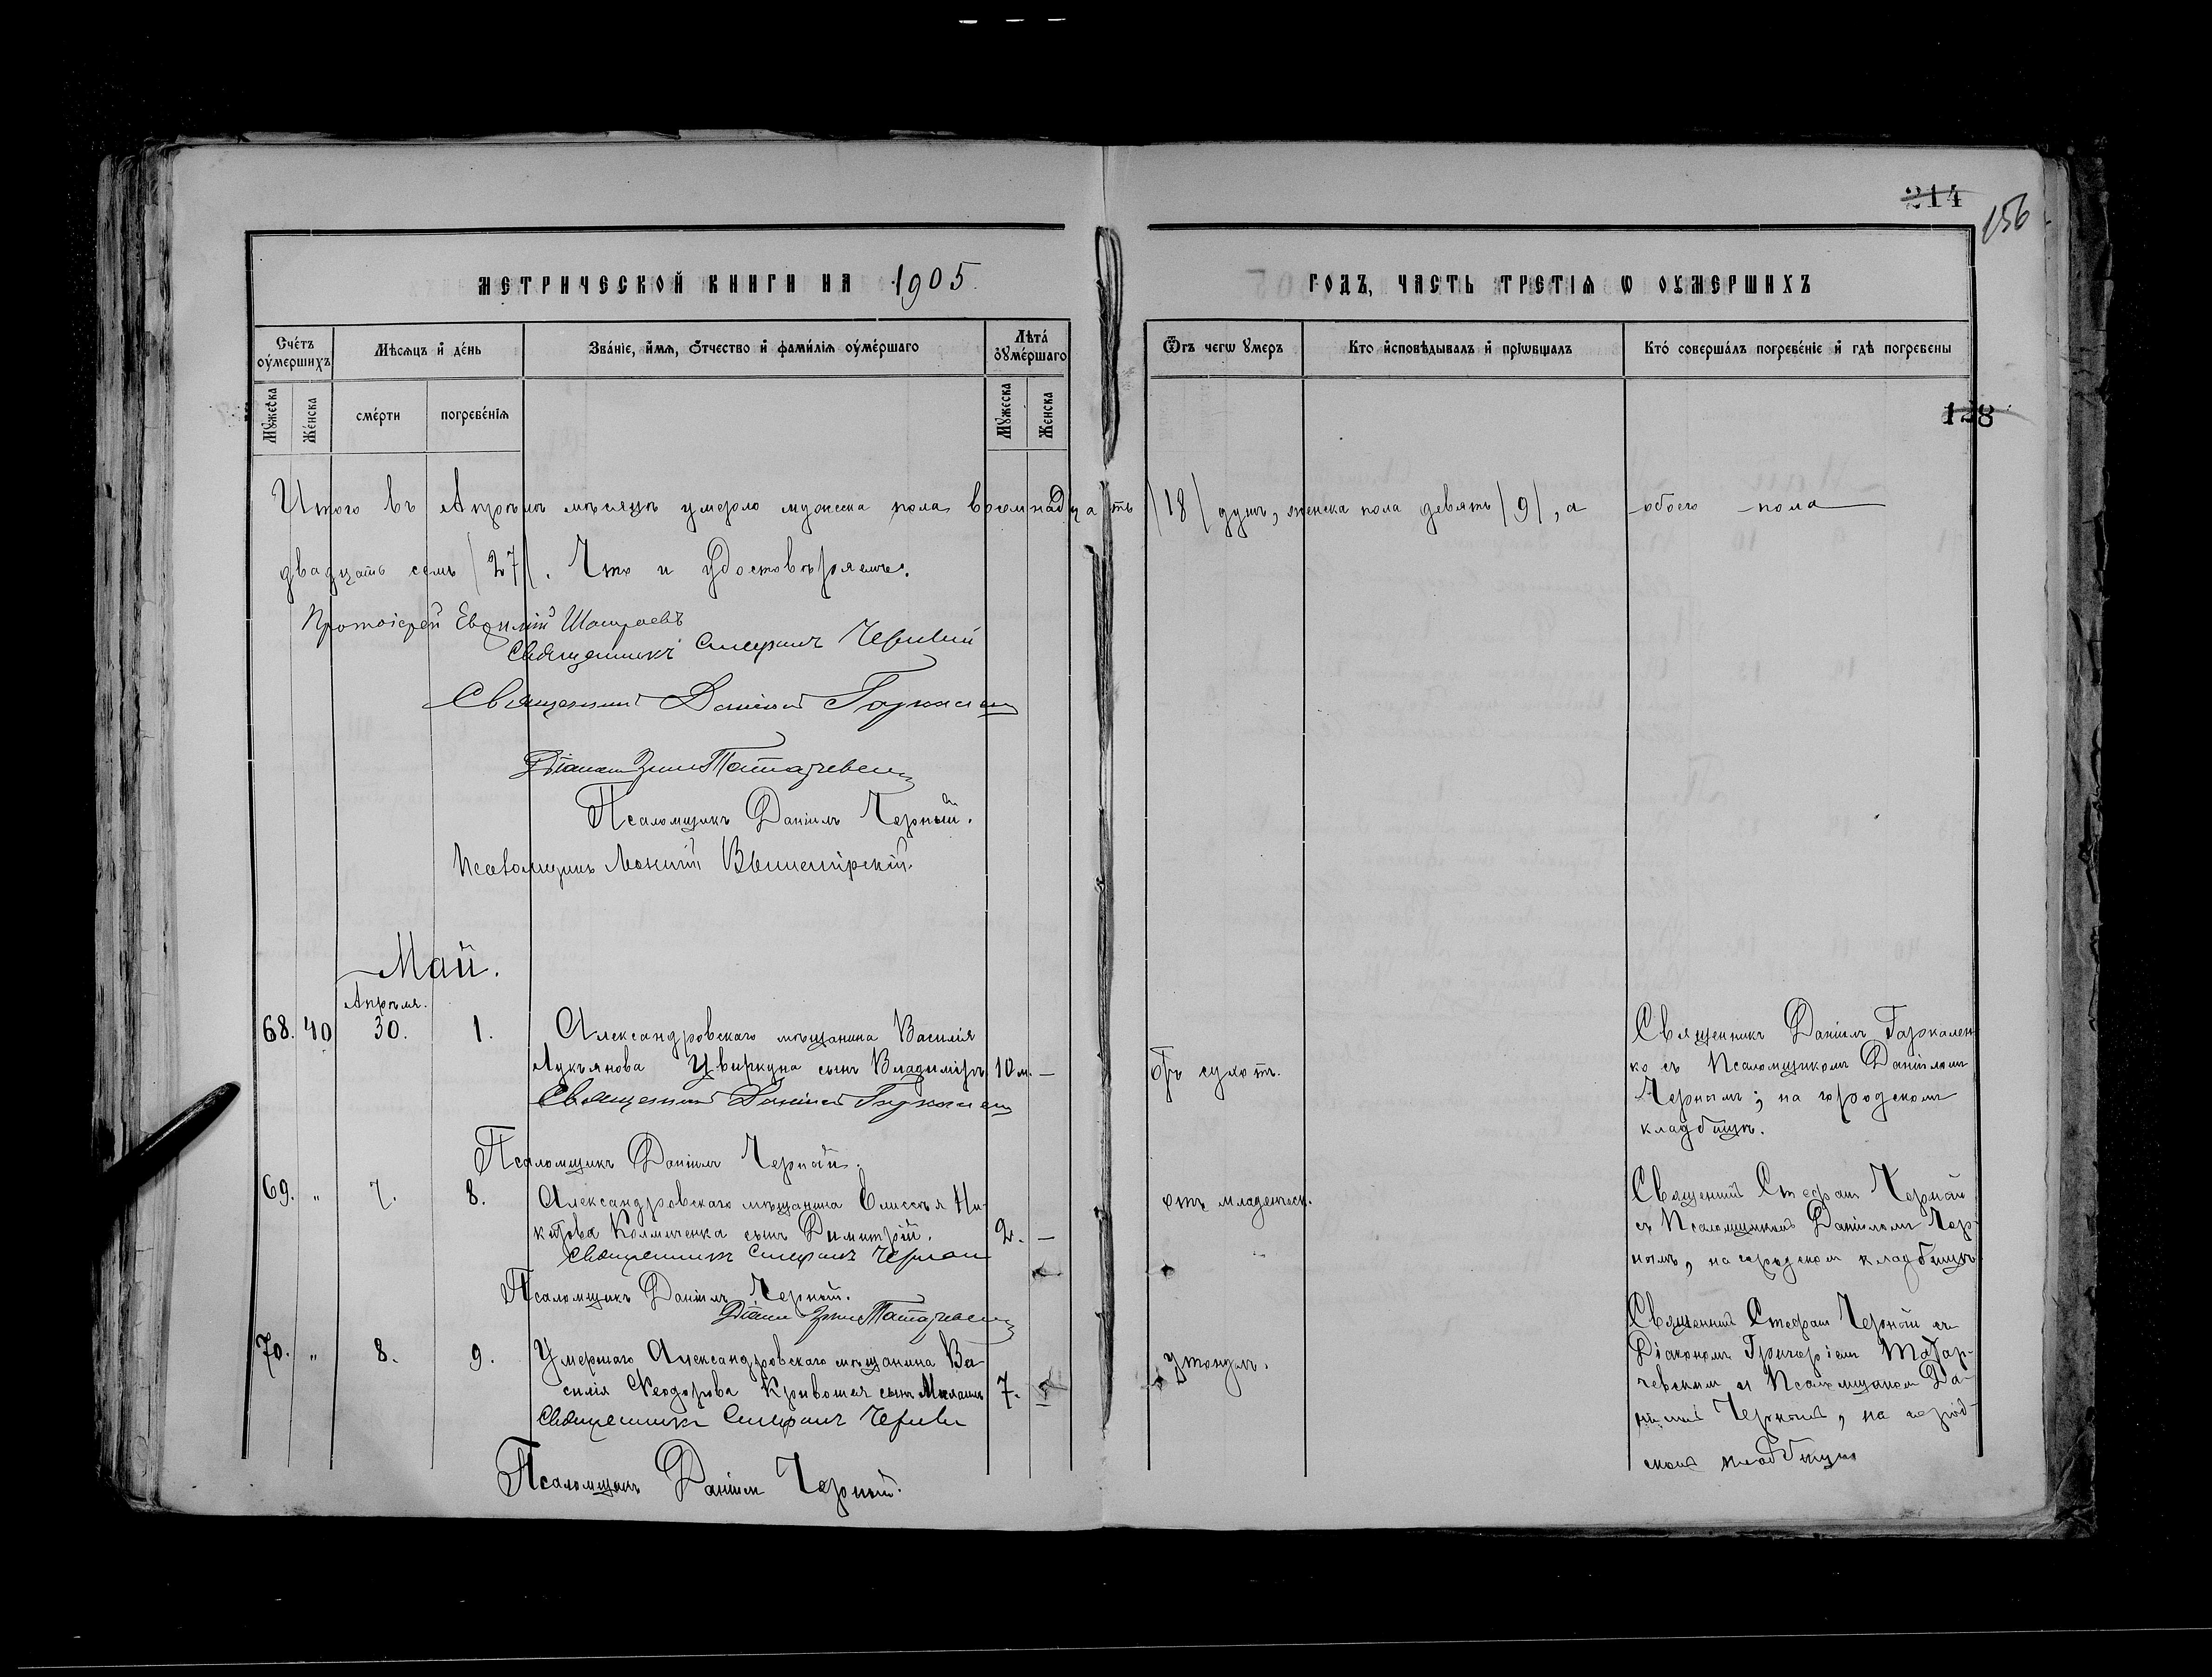 214
156
МЕТРИЧЕСКОЙ КНИГИ НА 1905 ГОДЪ, ЧАСТЬ ТРЕТІѦ Ѡ ОУМЕРШИХЪ
Счетъ оумершихъ
Мѣсяцъ и день
Званіе, имя, отчество и фамилія оумершаго
Лѣта оумершаго
Отъ чегѡ умеръ
Кто исповѣдывалъ и пріѡбщалъ
Кто совершалъ погребеніе и гдѣ погребены
Мужеска
Женска
смерти
погребенія
Мужеска
Женска
128
Итого въ Апрѣлѣ мѣсяцѣ умерло мужеска пола восемнадцать /18/ душъ, женска пола девять /9/, а обоего пола
двадцать семь /27/. Что и удостовѣряемъ.
Протоіерей Евфимій
Священникъ Стефанъ Черный
Священникъ Даніилъ Гаркаленко
Діаконъ
Псаломщикъ Даніилъ Черный.
Псаломщикъ
Май.
Апрѣля.
68. 40 30. 1. Александровскаго мѣщанина Василія
Лукьянова Цвиркуна сынъ Владиміръ 10 м. —
Отъ сухот.
Священникъ Даніилъ Гаркаленко
Псаломщикъ Даніилъ Черный.
Священникъ Даніилъ Гаркален
ко съ Псаломщикомъ Даніиломъ
Чернымъ; на городскомъ
кладбищѣ.
69. " 7. 8. Александровскаго мѣщанина Елисѣя Ни-
сынъ Димитрій. 2. —
отъ младенческ.
Священникъ Стефанъ Черный
Псаломщикъ Даніилъ Черный.
Священникъ Стефанъ Черный
съ Псаломщикомъ Даніиломъ Чер-
нымъ, на городском кладбищѣ
Діаконъ
70. " 8. 9. Умершаго Александровскаго мѣщанина Ва-
силія Ѳеодорова сынъ 7. —
утонулъ.
Священникъ Стефанъ Черный
Псаломщикъ Даніилъ Черный.
Священникъ Стефанъ Черный съ
Діакономъ Григоріем Татар-
чевским и Псаломщиком Да-
ніиломъ Чернымъ, на город-
скомъ кладбищѣ